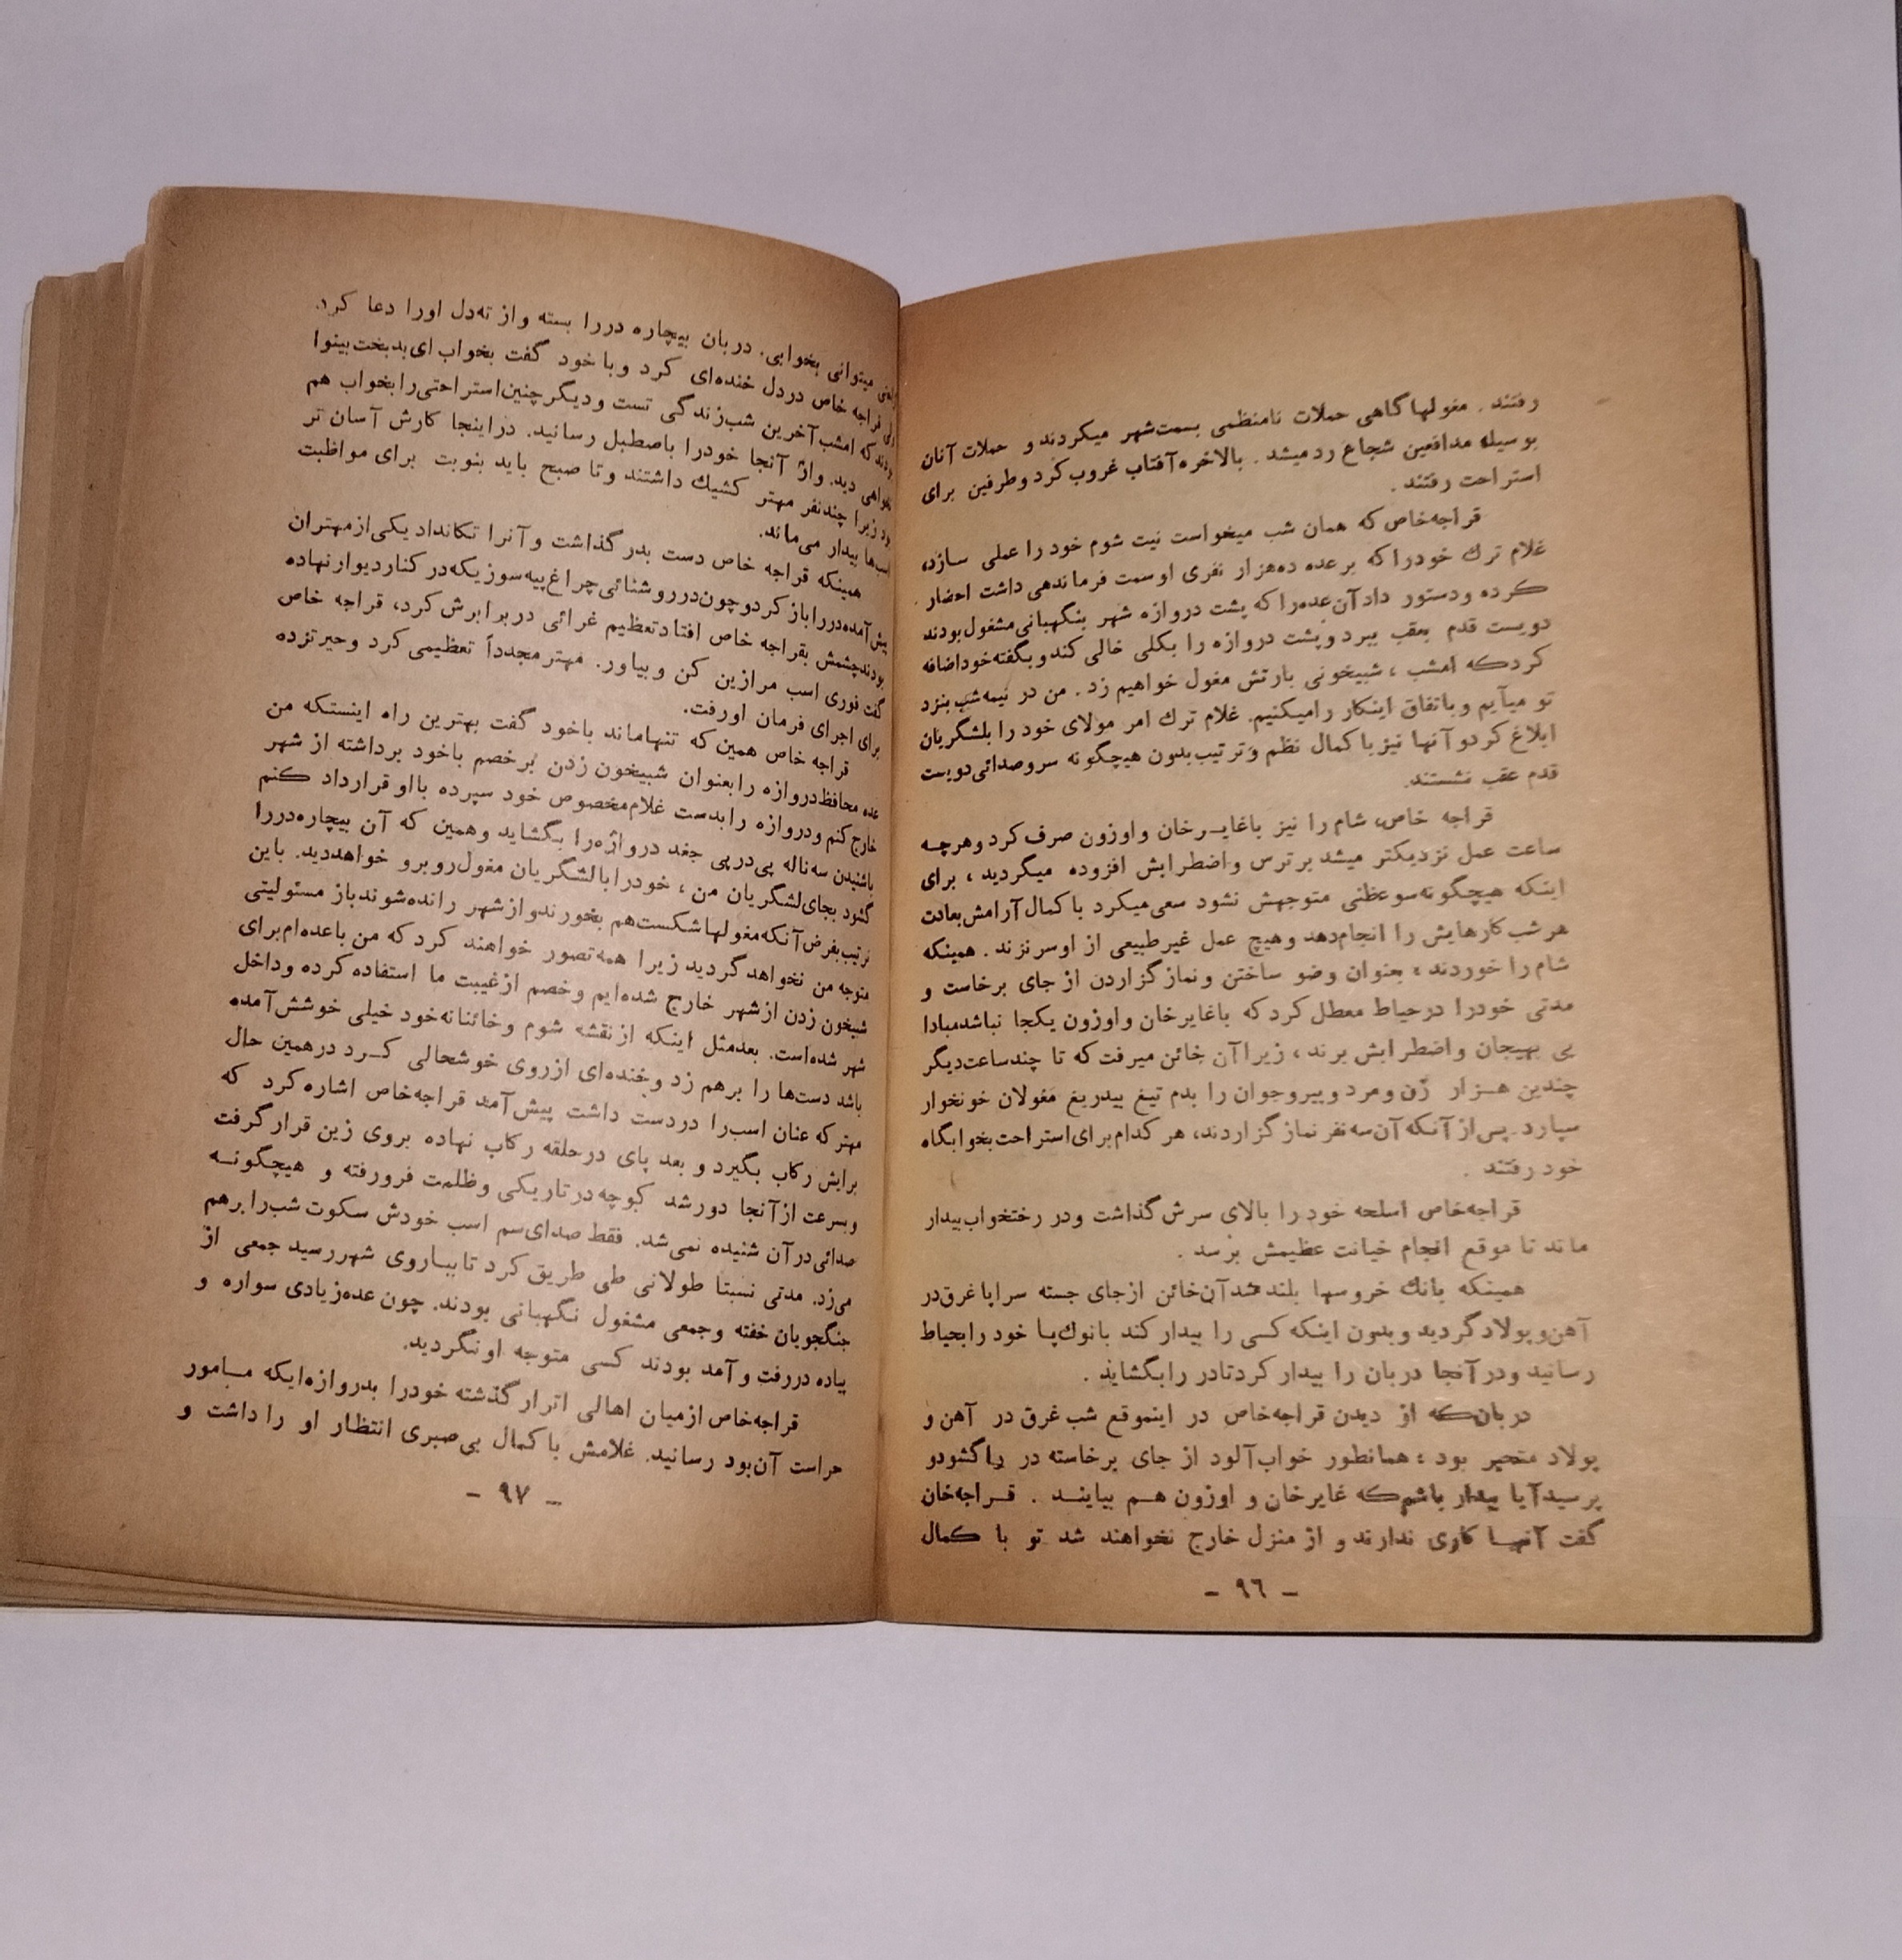 رفتند . مغولها گاهی حملات نامنظمی بسمت شهر میکردند و حملات آنان
بوسیله مدافعین شجاع رد میشد . بالاخره آفتاب غروب کرد و طرفین برای
استراحت رفتند .
قراجه خاص که همان شب میخواست نیت شوم خود را عملی سازد،
غلام ترك خود را که بر عده ده هزار نفری او سمت فرماندهی داشت احضار
کرده و دستور داد آن عده را که پشت دروازه شهر بنگهبانی مشغول بودند
دویست قدم بعقب ببرد و پشت دروازه را بکلی خالی کند و بگفته خود اضافه
کرد که امشب ، شبیخونی بارتش مغول خواهیم زد . من در نیمه شب بنزد
تو میآیم و باتفاق اینکار را میکنیم. غلام ترك امر مولای خود را بلشگریان
ابلاغ کرد و آنها نیز با کمال نظم و ترتیب بدون هیچگونه سر و صدائی دویست
قدم عقب نشستند.
قراجه خاص، شام را نیز با غایر خان و اوزون صرف کرد و هرچه
ساعت عمل نزدیکتر میشد بر ترس و اضطرابش افزوده میگردید ، برای
اینکه هیچگونه سوعظنی متوجهش نشود سعی میکرد با کمال آرامش بعادت
هر شب کارهایش را انجام دهد و هیچ عمل غیر طبیعی از او سر نزند . همینکه
شام را خوردند ، بعنوان وضو ساختن و نماز گزاردن از جای برخاست و
مدتی خود را در حیاط معطل کرد که با غایر خان و اوزون یکجا نباشد مبادا
پی بهیجان و اضطرابش برند ، زیرا آن خائن میرفت که تا چند ساعت دیگر
چندین هزار زن و مرد و پیر و جوان را بدم تیغ بیدریغ مغولان خونخوار
سپارد . پس از آنکه آن سه نفر نماز گزاردند، هر کدام برای استراحت بخوابگاه
خود رفتند .
قراجه خاص اسلحه خود را بالای سرش گذاشت و در رختخواب بیدار
ماند تا موقع انجام خیانت عظیمش برسد .
همینکه بانك خروسها بلند شد آن خائن از جای جسته سراپا غرق در
آهن و پولاد گردید و بدون اینکه کسی را بیدار کند با نوك پا خود را بحیاط
رسانید و در آنجا دربان را بیدار کرد تا در را بگشاید .
دربان که از دیدن قراجه خاص در اینموقع شب غرق در آهن و
پولاد متحیر بود ، همانطور خواب آلود از جای برخاسته در را گشود و
پرسید آیا بیدار باشم که غایر خان و اوزون هم بیایند . قراجه خان
گفت آنها کاری ندارند و از منزل خارج نخواهند شد تو با کمال
- ۹٦ -
میتوانی بخوابی. دربان بیچاره در را بسته و از ته دل او را دعا کرد.
قراجه خاص در دل خنده ای کرد و با خود گفت بخواب ای بدبخت بینوا
که امشب آخرین شب زندگی تست و دیگر چنین استراحتی را بخواب هم
دید. و از آنجا خود را باصطبل رسانید. در اینجا کارش آسان تر
زیرا چند نفر مهتر کشیك داشتند و تا صبح باید بنوبت برای مواظبت
بیدار می ماند.
همینکه قراجه خاص دست بدر گذاشت و آنرا تکانداد یکی از مهتران
پیش آمده در را باز کرد و چون در روشنائی چراغ پیه سوزیکه در کنار دیوار نهاده
بودند چشمش بقراجه خاص افتاد تعظیم غرائی در برابرش کرد، قراجه خاص
گفت فوری اسب مرا زین کن و بیاور. مهتر مجدداً تعظیمی کرد و حیرتزده
برای اجرای فرمان او رفت.
قراجه خاص همین که تنها ماند باخود گفت بهترین راه اینستکه من
عده محافظ دروازه را بعنوان شبیخون زدن بر خصم باخود برداشته از شهر
خارج کنم و دروازه را بدست غلام مخصوص خود سپرده با او قرارداد کنم
باشنیدن سه ناله پی در پی جغد دروازه را بگشاید و همین که آن بیچاره در را
گشود بجای لشگریان من ، خود را با لشگریان مغول روبرو خواهد دید. باین
ترتیب بفرض آنکه مغولها شکست هم بخورند و از شهر رانده شوند باز مسئولیتی
متوجه من نخواهد گردید زیرا همه تصور خواهند کرد که من با عده ام برای
شبیخون زدن از شهر خارج شده ایم و خصم از غیبت ما استفاده کرده و داخل
شهر شده است. بعد مثل اینکه از نقشه شوم و خائنانه خود خیلی خوشش آمده
باشد دست ها را برهم زد و خنده ای از روی خوشحالی کرد در همین حال
مهتر که عنان اسب را در دست داشت پیش آمد قراجه خاص اشاره کرد که
برایش رکاب بگیرد و بعد پای در حلقه رکاب نهاده بروی زین قرار گرفت
و بسرعت از آنجا دور شد کوچه در تاریکی و ظلمت فرو رفته و هیچگونه
صدائی در آن شنیده نمی شد. فقط صدای سم اسب خودش سکوت شب را برهم
می زد. مدتی نسبتا طولانی طی طریق کرد تا بباروی شهر رسید جمعی از
جنگجویان خفته و جمعی مشغول نگهبانی بودند. چون عده زیادی سواره و
پیاده در رفت و آمد بودند کسی متوجه او نگردید.
قراجه خاص از میان اهالی اترار گذشته خود را بدروازه ایکه مامور
حراست آن بود رسانید. غلامش با کمال بی صبری انتظار او را داشت و
- ۹۷ -